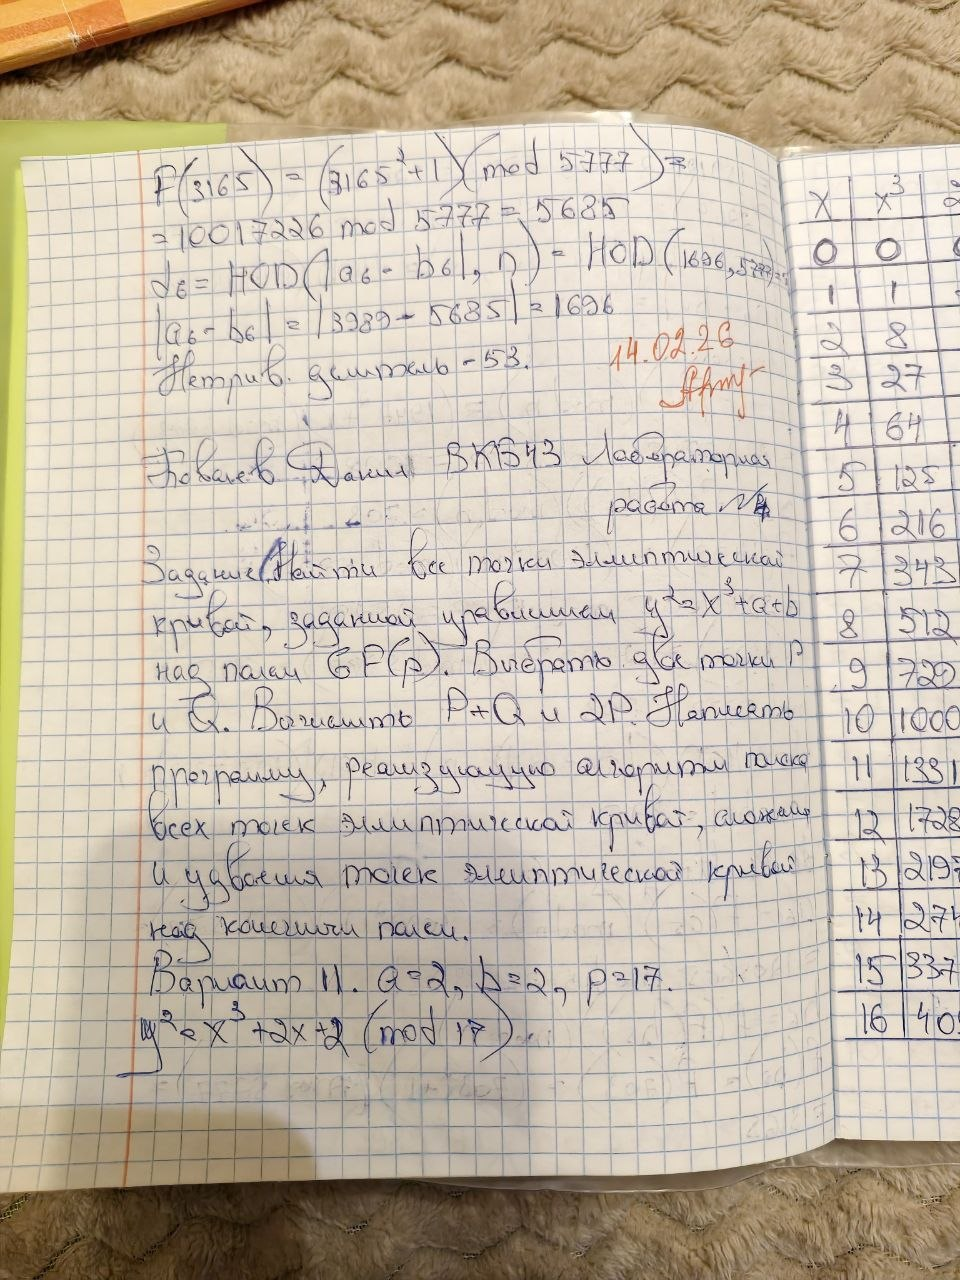 F(3165) = (3165²+1)(mod 5777) =
= 10017226 mod 5777 = 5685
d₆ = НОД(|a₆ - b₆|, n) = НОД(1696, 5777) =
|a₆ - b₆| = |3989 - 5685| = 1696
Нетрив. делитель - 53.
14.02.26
Ковалев Данил ВКБ43 Лабораторная
работа №4
Задание: Найти все точки эллиптической
кривой, заданной уравнением y²=x³+a+b
над полем GF(p). Выбрать две точки P
и Q. Вычислить P+Q и 2P. Написать
программу, реализующую алгоритм поиска
всех точек эллиптической кривой, сложения
и удвоения точек эллиптической кривой
над конечным полем.
Вариант 11. a=2, b=2, p=17.
y² = x³ + 2x + 2 (mod 17).
x x³ 2
0 0
1 1
2 8
3 27
4 64
5 125
6 216
7 343
8 512
9 729
10 1000
11 1331
12 1728
13 2197
14 274
15 337
16 409